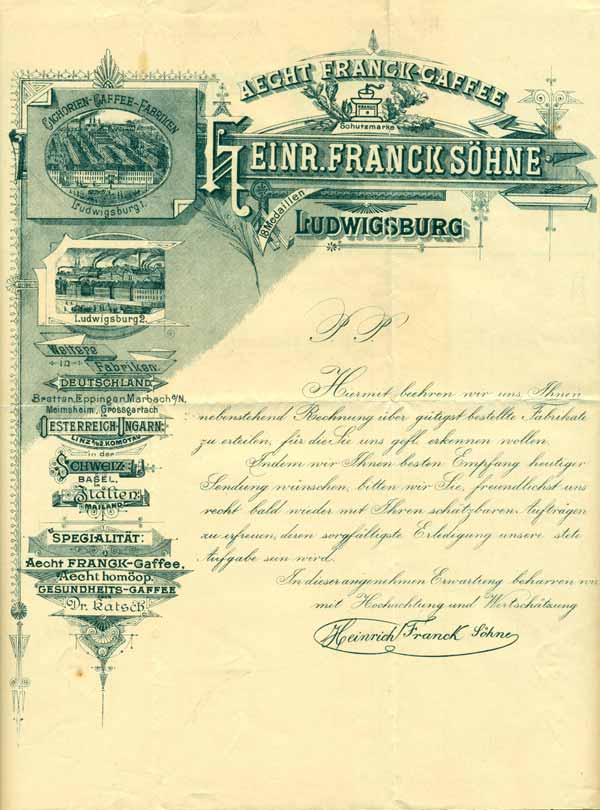 AECHT FRANCK-CAFFEE
FRANCK
Schutzmarke
HEINR. FRANCK SÖHNE
18 Medaillen
LUDWIGSBURG
CICHORIEN-CAFFEE-FABRIKEN
Ludwigsburg 1.
Ludwigsburg 2.
Weitere
in
Fabriken:
DEUTSCHLAND
Bretten, Eppingen, Marbach a/N,
Meimsheim, Grossgartach
in
OESTERREICH-UNGARN:
LINZ a/D. KOMOTAU
in der
SCHWEIZ:
BASEL,
in
Italien
MAILAND
SPECIALITÄT:
Aecht FRANCK-Caffee,
Aecht homöop.
GESUNDHEITS-CAFFEE
Dr. Katsch.
P. P.
Hiermit beehren wir uns Ihnen
nebenstehend Rechnung über gütigst bestellte Fabrikate
zu erteilen, für die Sie uns gefl. erkennen wollen.
Indem wir Ihnen besten Empfang heutiger
Sendung wünschen, bitten wir Sie, freundlichst uns
recht bald wieder mit Ihren schätzbaren Aufträgen
zu erfreuen, deren sorgfältigste Erledigung unsere stete
Aufgabe sein wird.
In dieser angenehmen Erwartung beharren wir
mit Hochachtung und Wertschätzung
Heinrich Franck Söhne